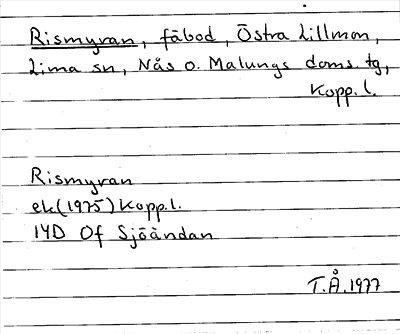 Rismyran, fäbod, Östra Lillmon,
Lima sn, Nås o. Malungs doms. tg,
Kopp. l.
Rismyran
ek (1975) Kopp. l.
14D Of Sjöändan
T.Å. 1977